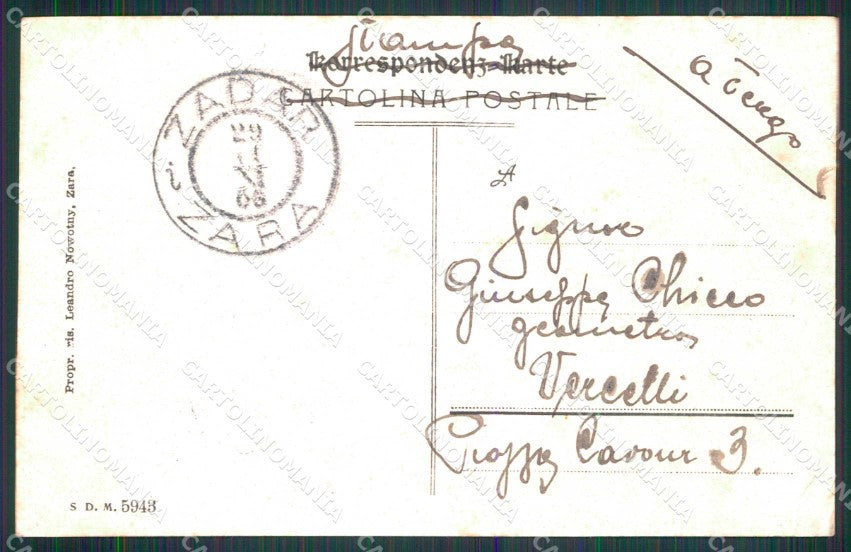 Stampa
Korrespondenz-Karte
CARTOLINA POSTALE
ZADAR
i
ZARA
29
VI
06
A
Signore
Giuseppe Chicco
geometra
Vercelli
Piazza Cavour 3.
Propr. ris. Leandro Nowotny, Zara.
S D. M. 5943
CARTOLINOMANIA